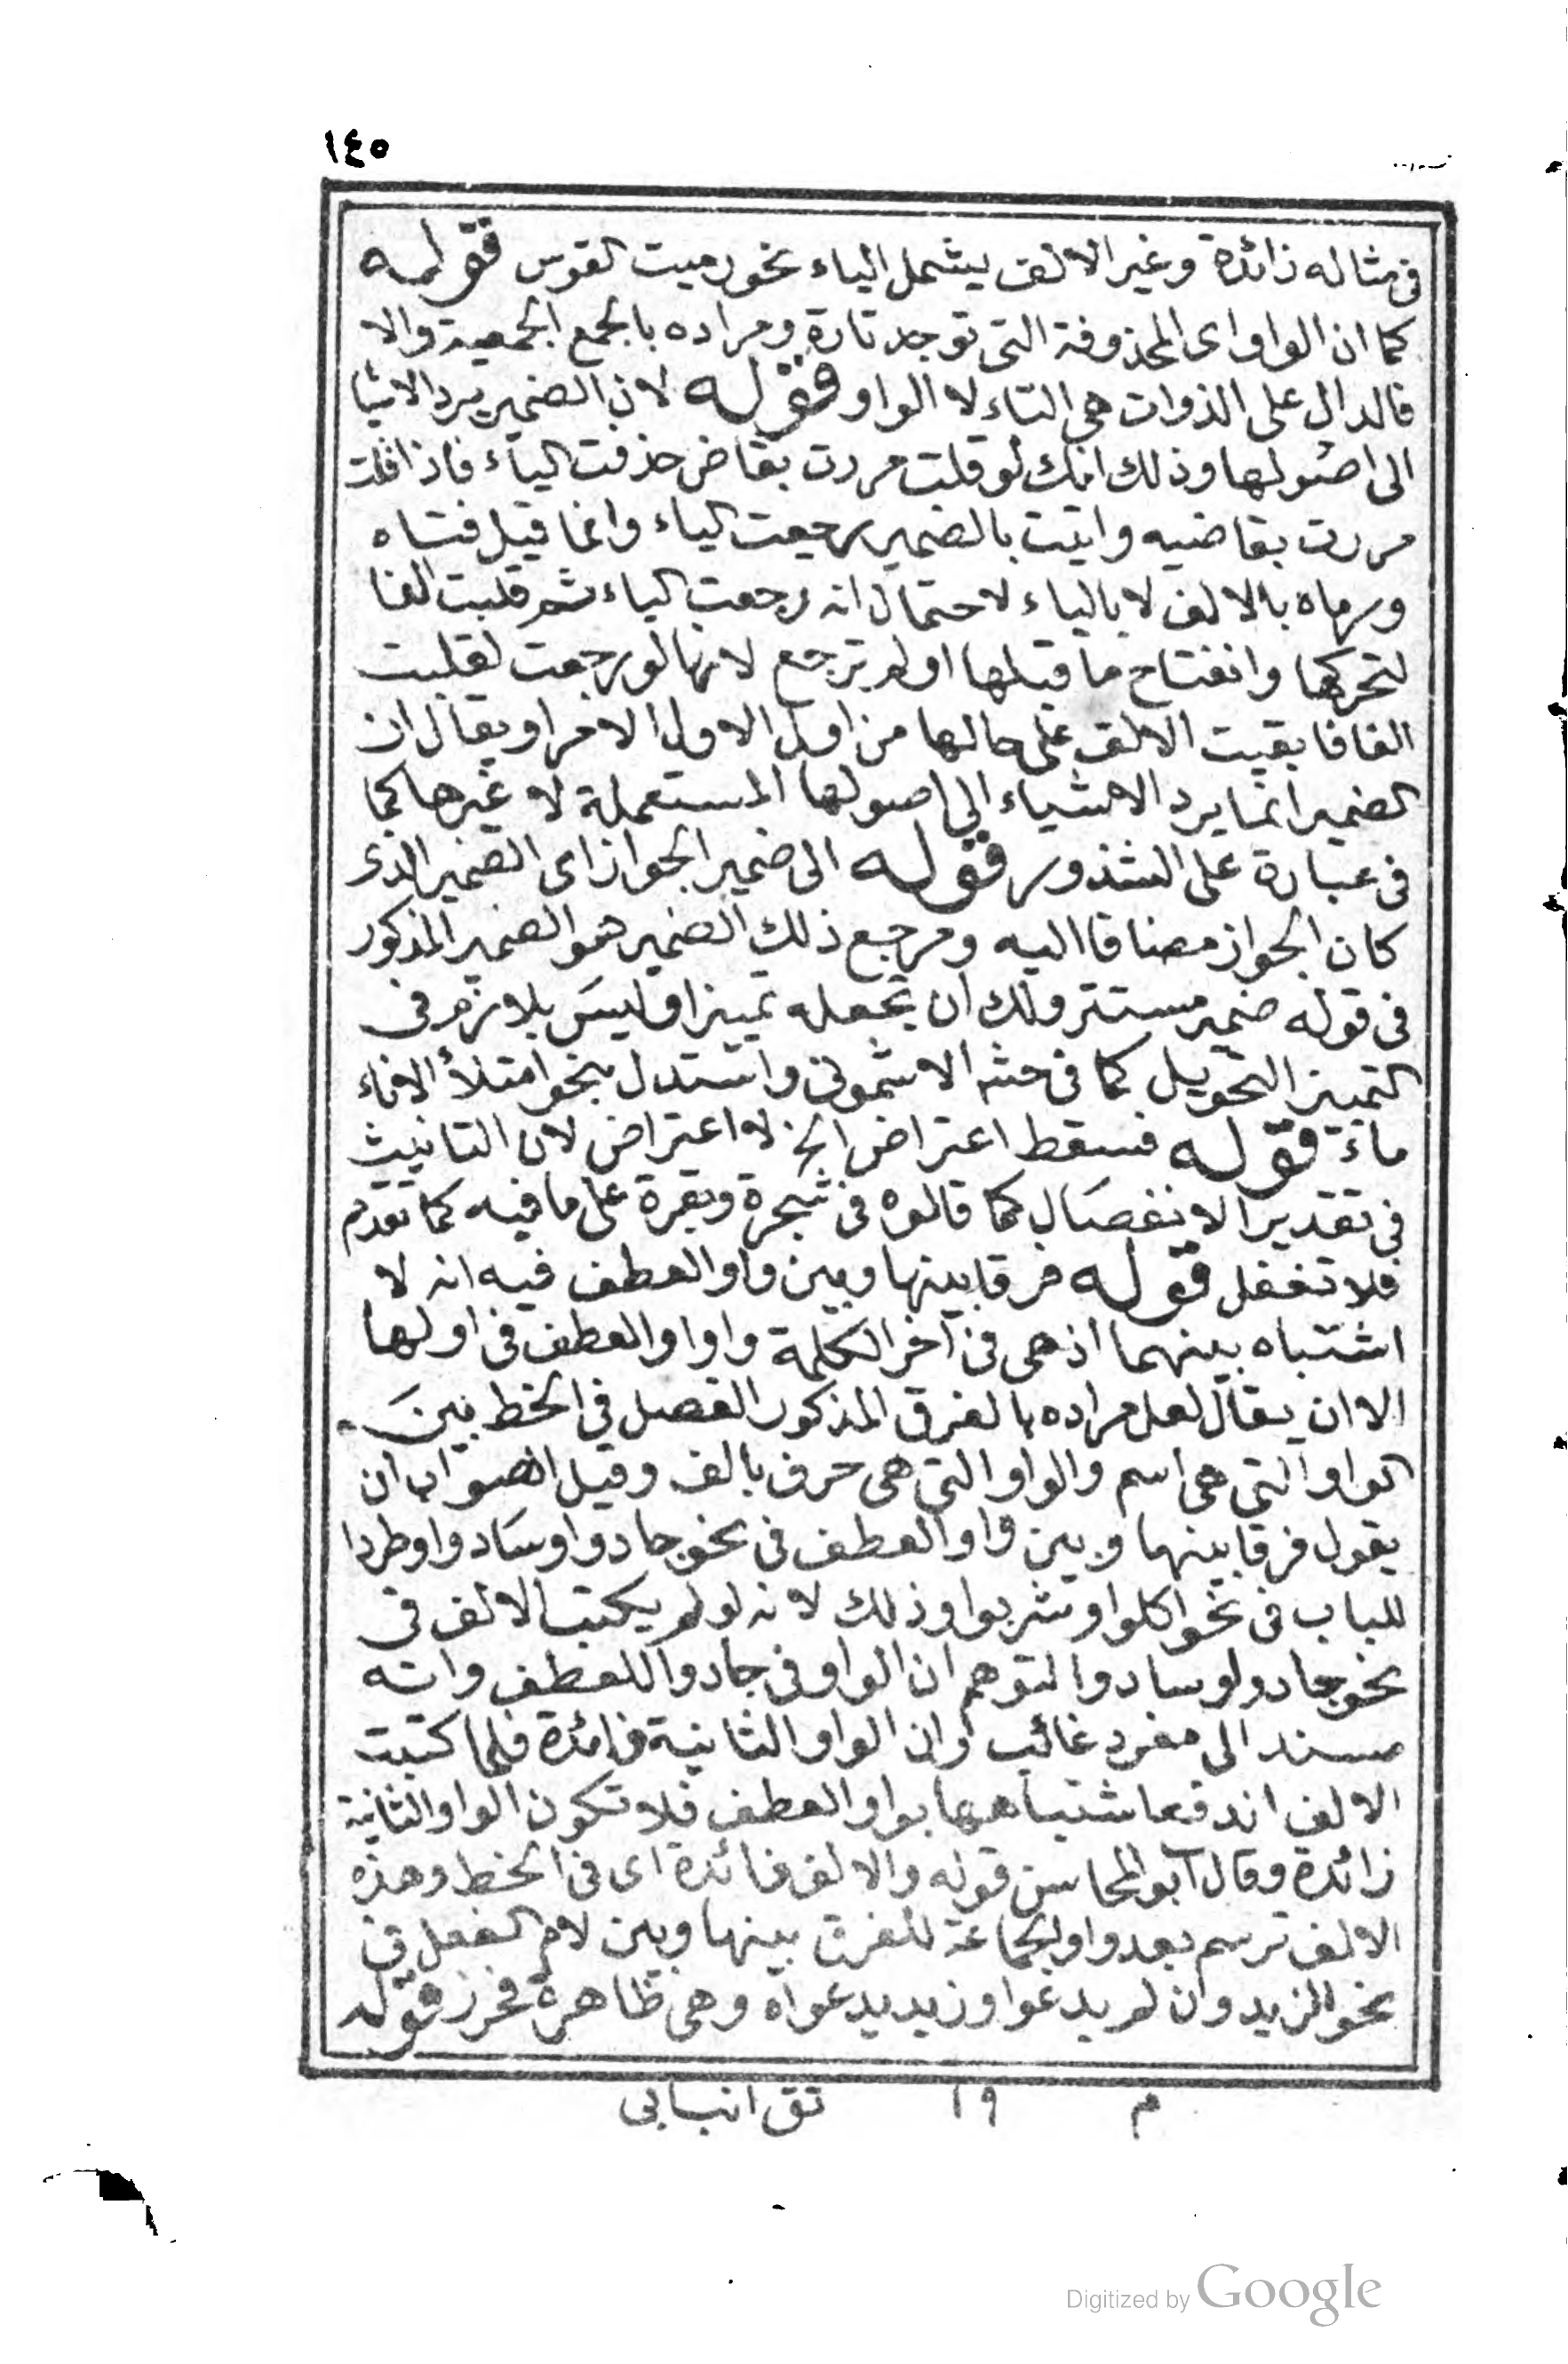 ١٤٥
فى مثاله زائدة وغير الالف يشمل الياء نحو رميت القوس قوله
كما ان الواو اى المحذوفة التى توجد تارة ومراده بالجمع الجمعية والا
فالدال على الذوات هى التاء لا الواو قوله لان الضمير يرد الاشيا
الى اصولها وذلك انك لو قلت مررت بقاض حذفت الياء فاذا قلت
مررت بقاضيه واتيت بالضمير رجعت الياء وانما قيل فتاه
ورماه بالالف لا بالياء لاحتمال انه رجعت الياء ثم قلبت الفا
لتحركها وانفتاح ما قبلها او لم ترجع لانها لو رجعت لقلبت
الفا فابقيت الالف على حالها من اول الاول الامر او يقال ان
الضمير انما يرد الاشياء الى اصولها المستعملة لا غيرها كما
فى عبارة على الشذور قوله الى ضمير الجواز اى الضمير الذى
كان الجواز مضافا اليه ومرجع ذلك الضمير هو الضمير المذكور
فى قوله ضمير مستتر ولك ان تجعله تمييزا وليس بلازم فى
التمييز التحويل كما فى حشه الاشمونى واستدل بنحو امتلأ الاناء
ماء قوله فسقط اعتراض الخ لا اعتراض لان التانيث
فى تقدير الانفصال كما قالوه فى شجرة وبقرة على ما فيه كما تقدم
فلا تغفل قوله فرقا بينها وبين واو العطف فيه انه لا
اشتباه بينهما اذ هى فى آخر الكلمة واو او العطف فى اولها
الا ان يقال لعل مراده بالفرق المذكور الفصل فى الخط بين
الواو التى هى اسم والواو التى هى حرف بالف وقيل الصواب ان
يقول فرقا بينها وبين واو العطف فى نحو جادوا وسادوا وطردا
للباب فى نحو اكلوا وشربوا وذلك لانه لو لم يكتب الالف فى
نحو جادو لو سادوا لتوهم ان الواو فى جادوا للعطف وانه
مسند الى مفرد غائب وان الواو الثانية زائدة فلما كتبت
الالف اندفع اشتباهها بواو العطف فلا تكون الواو الثانية
زائدة وقال ابو المحاسن قوله والالف فائدة اى فى الخط وهذه
الالف ترسم بعد واو الجماعة للفرق بينها وبين لام الفعل فى
نحو الزيدون لم يدعوا وزيد يدعواه وهى ظاهرة فحرر قوله
م ١٩ تق انبابى
Digitized by Google